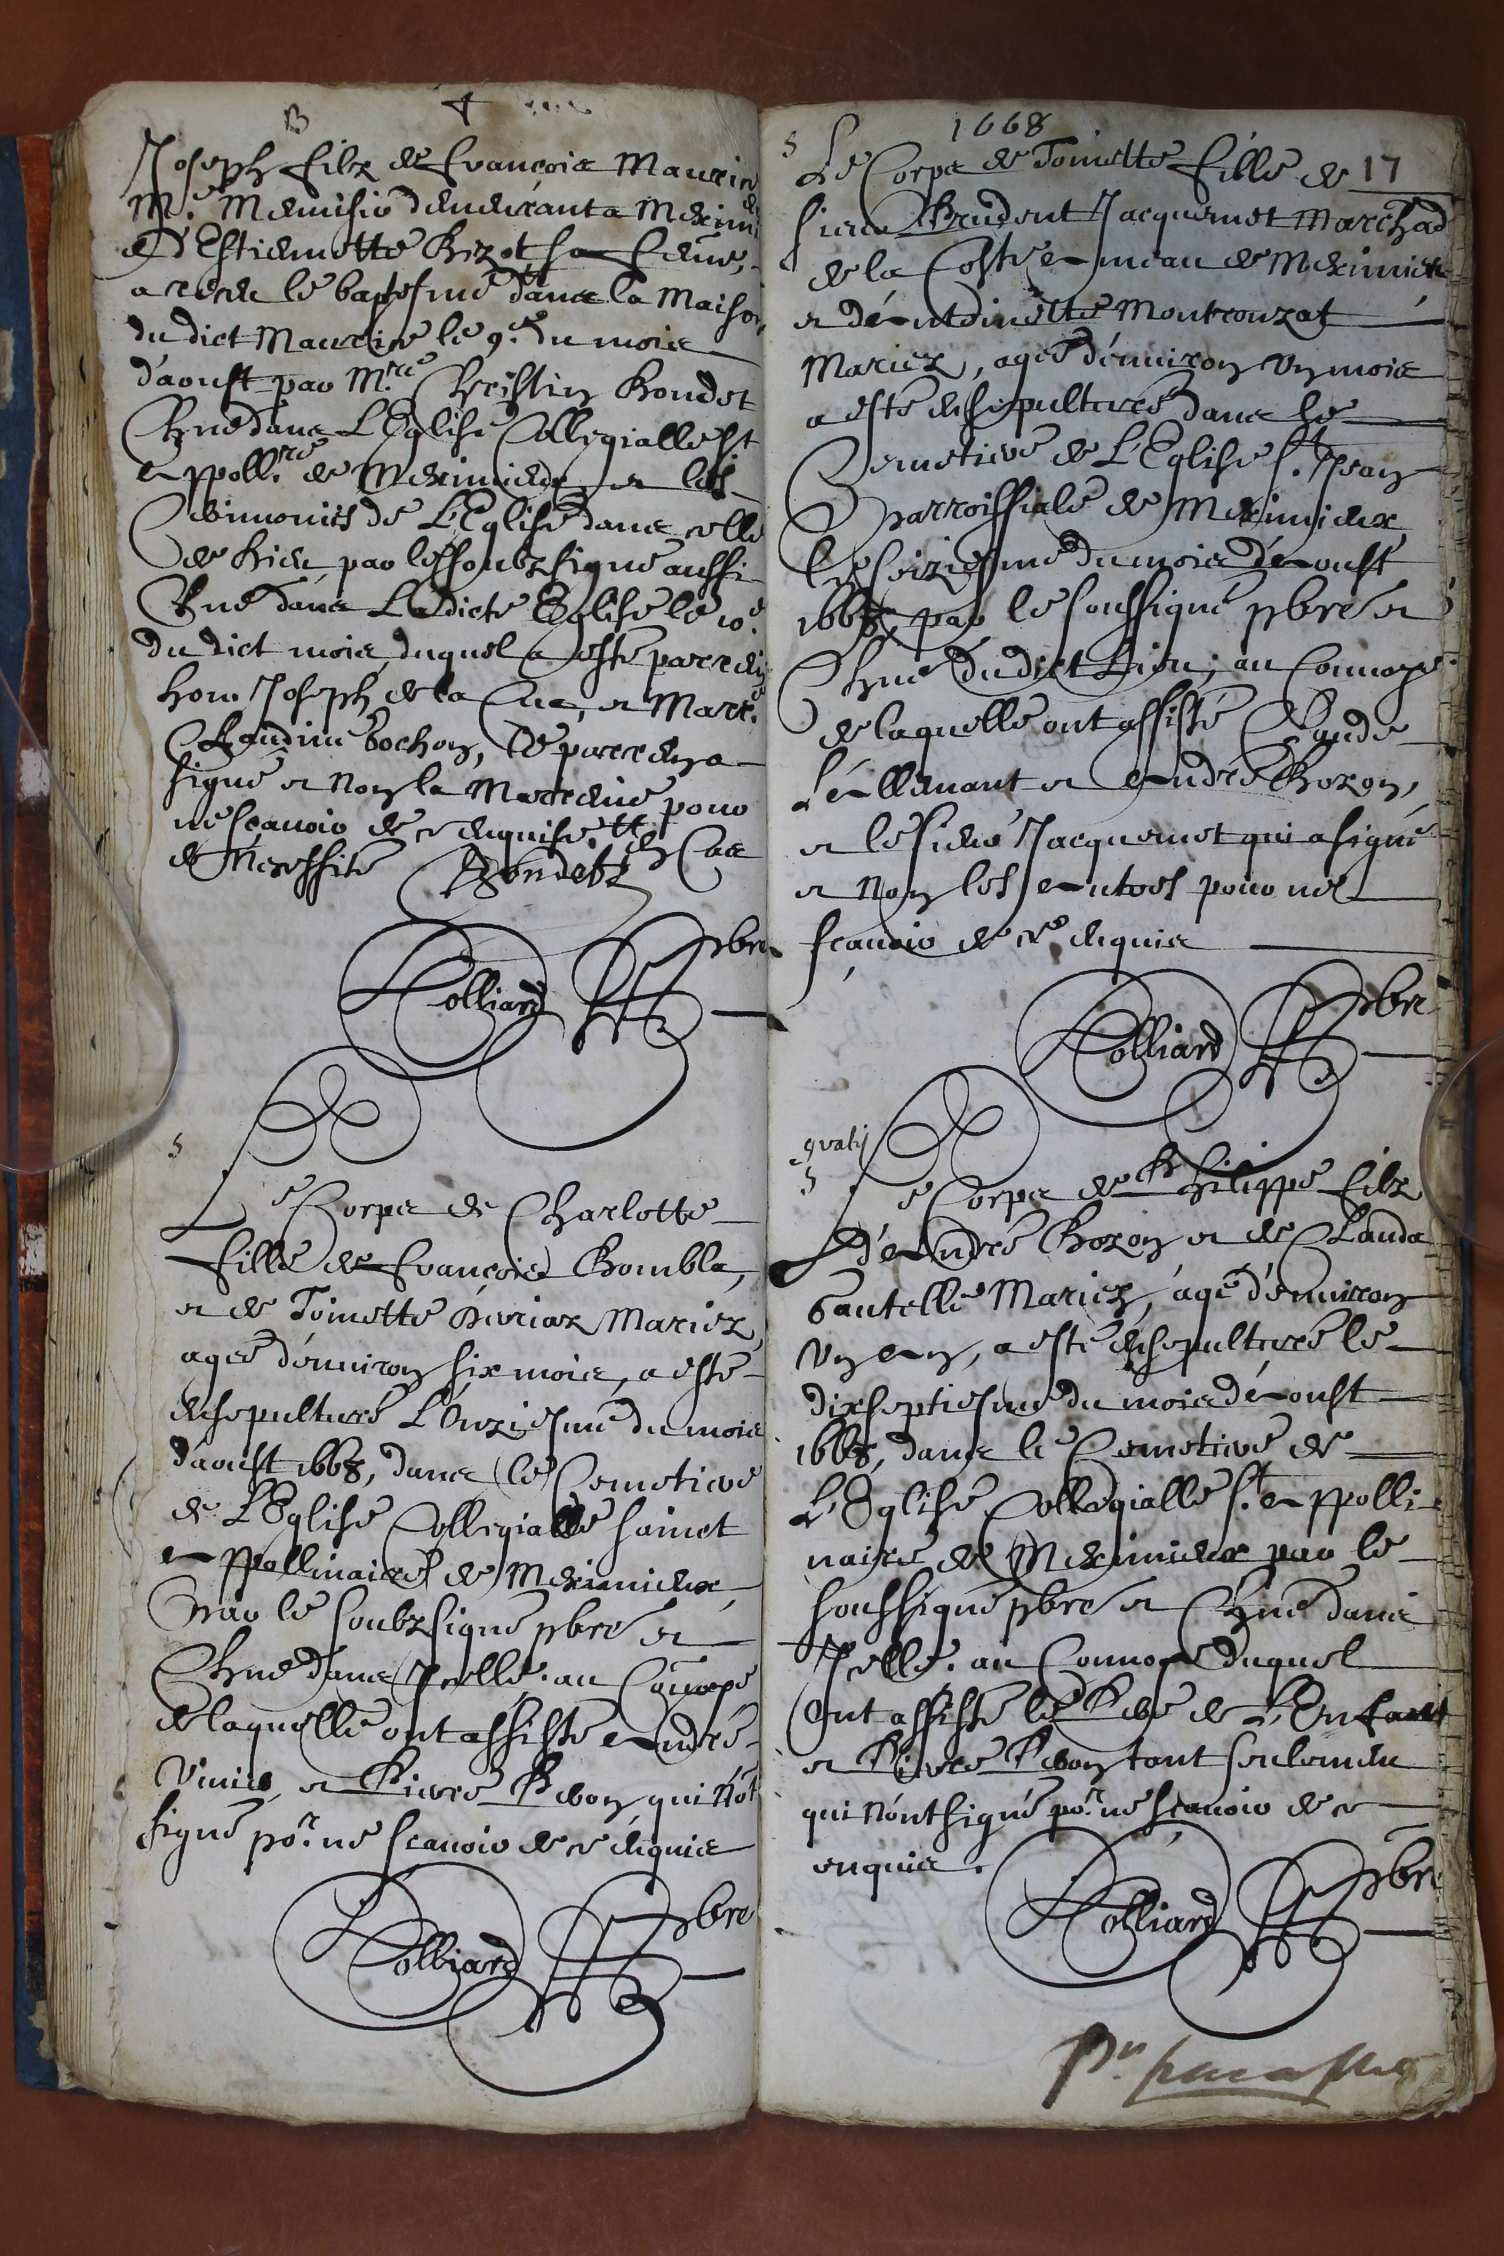 B
Joseph filz de François Maurice
M.e Menusié demeurant a Meximi
et d'Estiennette Bizot sa feme,
a receu le baptesme dans la Maison
du dict Maurice le 9.e du mois
d'aoust par M.re Christin Bondet
Chne dans L'Eglise Collegialle St
Appoll.re de Meximieux, et les
Cerimonies de L'Eglise dans celle
de Lieu, par le soubzsigné aussi
Chne dans La dicte Eglise le 10.e
du dict mois, duquel a esté parrein
hon. Joseph de la Cua, et Marr.e
Claudine bochon, Le parrein a
signé et Non la Marreine pour
ne sçavoir de ce enquise.
de Necessité
Bondet
Rolliard pbre
S
Le Corps de Charlotte
fille de François Bombla,
et de Toinette Periaz Mariez,
agée d'environ six mois, a esté
ensepulturé L'Onziesme du mois
d'aoust 1668, dans le Cemetiere
de L'Eglise Collegialle sainct
Appollinaire de Meximieux,
par le soubzsigné pbre et
Chne dans Icelle. au Convoye
de laquelle ont assisté André
Vinier et Pierre Pevon qui n'ot
signé po.r ne scavoir de ce enquis
Rolliard pbre
1668
17
S
Le Corps de Toinette fille de
sieur Prudent Jacquemet Marchād
de la Coste Aneau de Meximieux
et d'Antoinette Montrouzat
Mariez, agée d'environ un mois
a esté ensepulturé dans le
Cemetiere de L'Eglise S.t Jean
Parroissiale de Meximieux
le seiziesme du mois d'Aoust
1668, par le soussigné pbre et
Chne du dict Lieu; au Convoye
de laquelle ont assisté Claude
L'allemant et André Bozon,
et le sieur Jacquemet qui a signé
et Non les Autres pour ne
sçavoir de ce enquis
Rolliard pbre
gratis
S
Le Corps de Philippe filz
d'André Bozon et de Clauda
Gautelle Mariez, agé d'environ
un An, a esté ensepulturé le
dixseptiesme du mois d'Aoust
1668, dans le Cemetiere de
L'Eglise Collegialle S.t Appolli-
naire de Meximieux par le
soussigné pbre et Chne dans
Icelle. au Convoye duquel
Ont assisté le Pere de L'Enfant
et Pierre Pevon tant seulement
qui n'ont signé po.r ne scavoir de ce
enquis.
Rolliard pbre